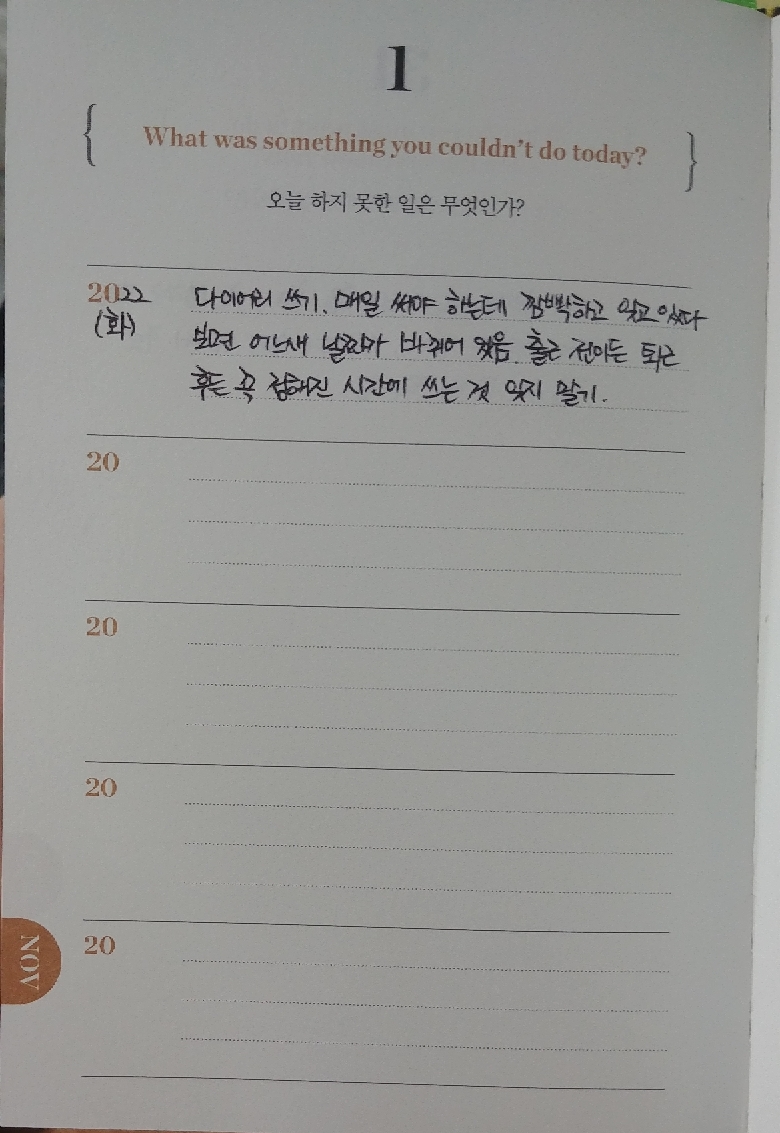 1
What was something you couldn't do today?
오늘 하지 못한 일은 무엇인가?
2022 다이어리 쓰기. 매일 써야 하는데 깜빡하고 잊고 있다
(화) 보면 어느새 날짜가 바뀌어 있음. 출근 전이든 퇴근
후든 꼭 정해진 시간에 쓰는 것 잊지 말기.
20
20
20
20
NOV